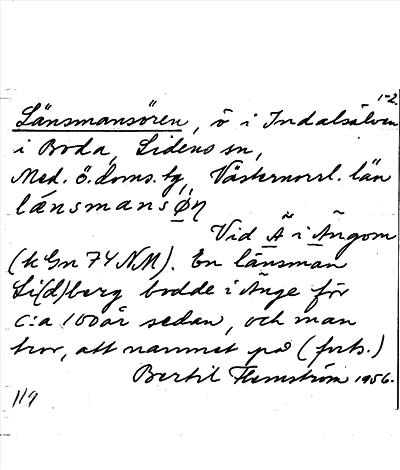 1-2.
Länsmansören, ö i Indalsälven
i Boda, Lidens sn,
Med. ö. doms. tg, Västernorrl. län
lǽnsmansǿn
Vid Ã i Ãngom
(k Gn 74 NM). En länsman
Li(d)berg bodde i Änge för
c:a 100 år sedan, och man
tror, att namnet på (forts.)
Bertil Flemström 1956.
119